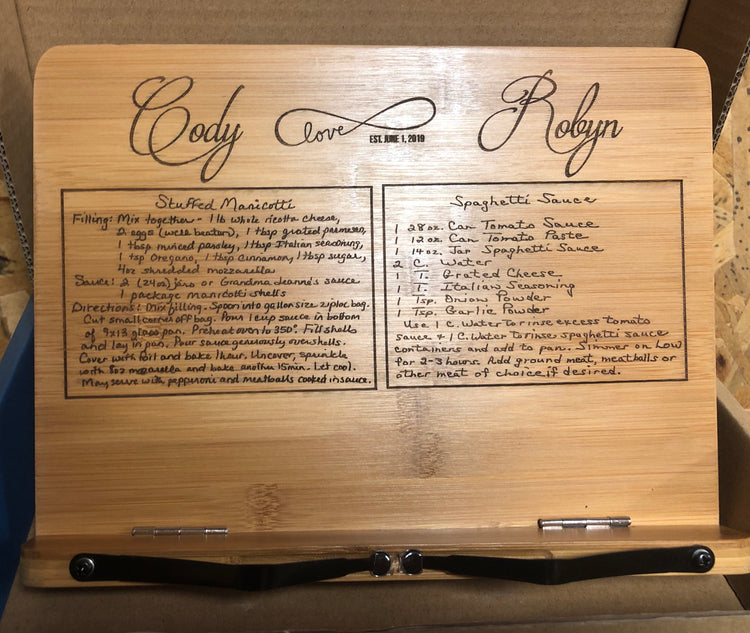 Cody
love
EST. JUNE 1, 2019
Robyn
Stuffed Manicotti
Filling: Mix together - 1 lb whole ricotta cheese,
2 eggs (well beaten), 1 tbsp grated parmesan,
1 tbsp minced parsley, 1 tbsp Italian seasoning,
1 tsp Oregano, 1 tbsp Cinnamon, 1 tbsp sugar,
4oz shredded mozzarella
Sauce: 2 (24oz) jars or Grandma Jeanne's sauce
1 package manicotti shells
Directions: Mix filling. Spoon into gallon size ziploc bag.
Cut small corner off bag. Pour 1 cup sauce in bottom
of 9x13 glass pan. Preheat oven to 350°. Fill shells
and lay in pan. Pour sauce generously over shells.
Cover with foil and bake 1 hour. Uncover, sprinkle
with 8oz mozzarella and bake another 15 min. Let cool.
May serve with pepperoni and meatballs cooked in sauce.
Spaghetti Sauce
1 28 oz. Can Tomato Sauce
1 12 oz. Can Tomato Paste
1 14 oz. Jar Spaghetti Sauce
2 C. Water
1 T. Grated Cheese
1 T. Italian Seasoning
1 Tsp. Onion Powder
1 Tsp. Garlic Powder
Use 1 C. Water to rinse excess tomato
sauce & 1 C. Water to rinse spaghetti sauce
containers and add to pan. Simmer on Low
for 2-3 hours. Add ground meat, meatballs or
other meat of choice, if desired.